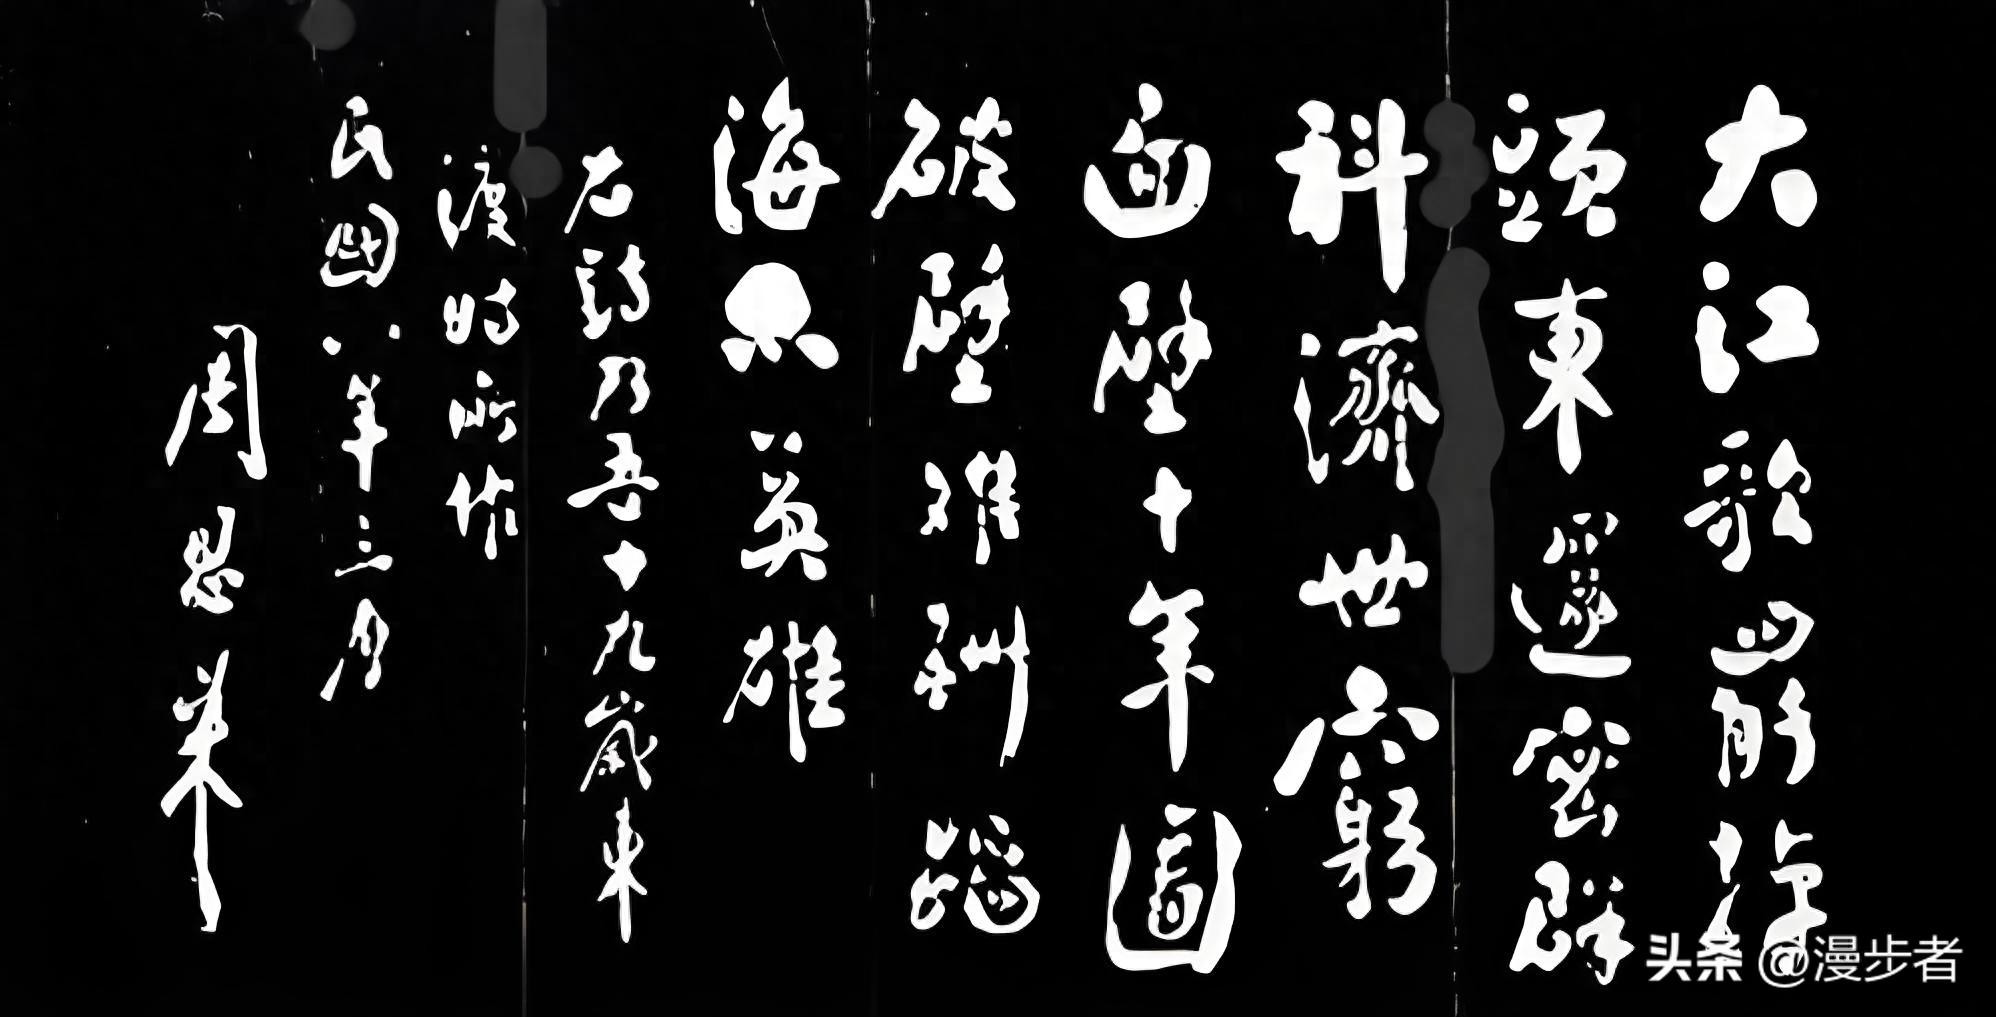 大江歌罷掉
頭東邃密群
科濟世窮
面壁十年圖
破壁难酬蹈
海亦英雄
右詩乃吾十九歲東
渡時所作
民國八年三月
周恩來
头条 @漫步者